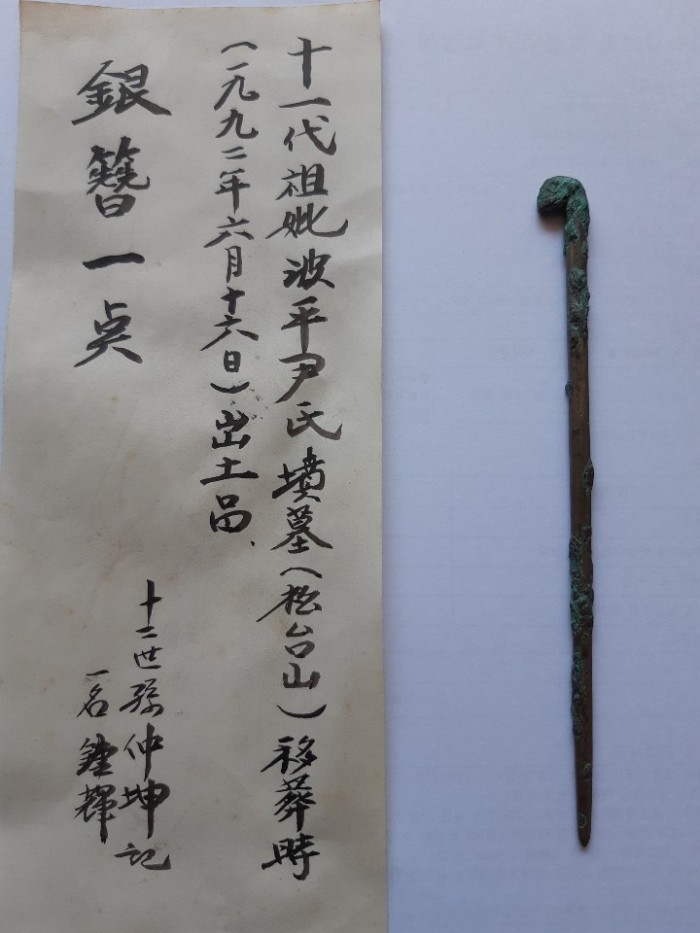 十一代祖妣波平尹氏墳墓(松台山)移葬時
(一九九二年六月十六日)出土品
銀簪一点
十二世孫仲坤記
一名鍾輝